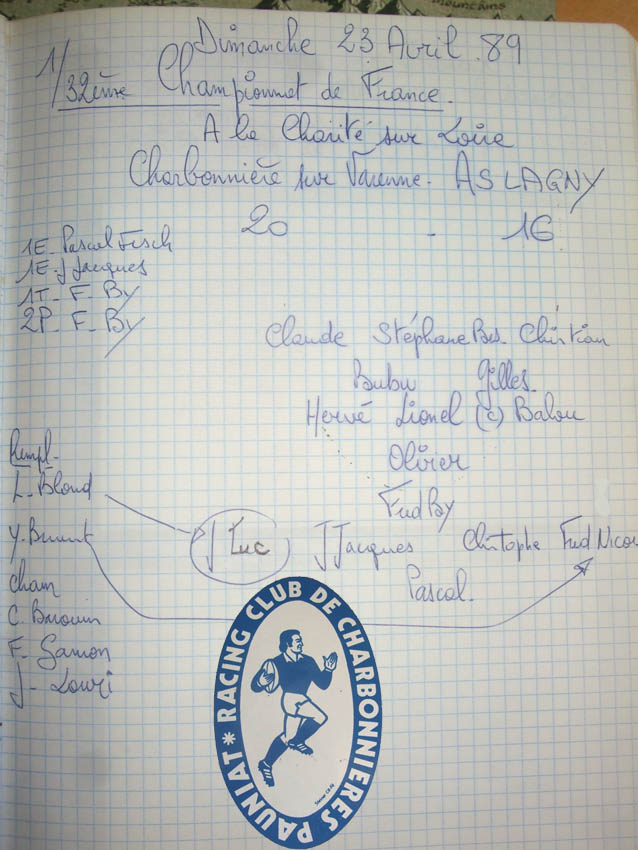 Dimanche 23 Avril .89
1/32ème Championnat de France.
A la Charité sur Loire
Charbonnière sur Varenne. AS LAGNY
20 - 16
1E- Pascal Fisch
1E- J Jacques
1T- F- By
2P- F- By
Claude Stéphane Bes Christian
Bubu Gilles
Hervé Lionel (c) Balou
Olivier
Fred By
Rempl-
L- Blond
J Luc J Jacques Christophe Fred Nicou
Pascal.
Cham
F-
J-
RACING CLUB DE CHARBONNIERES PAUNIAT *